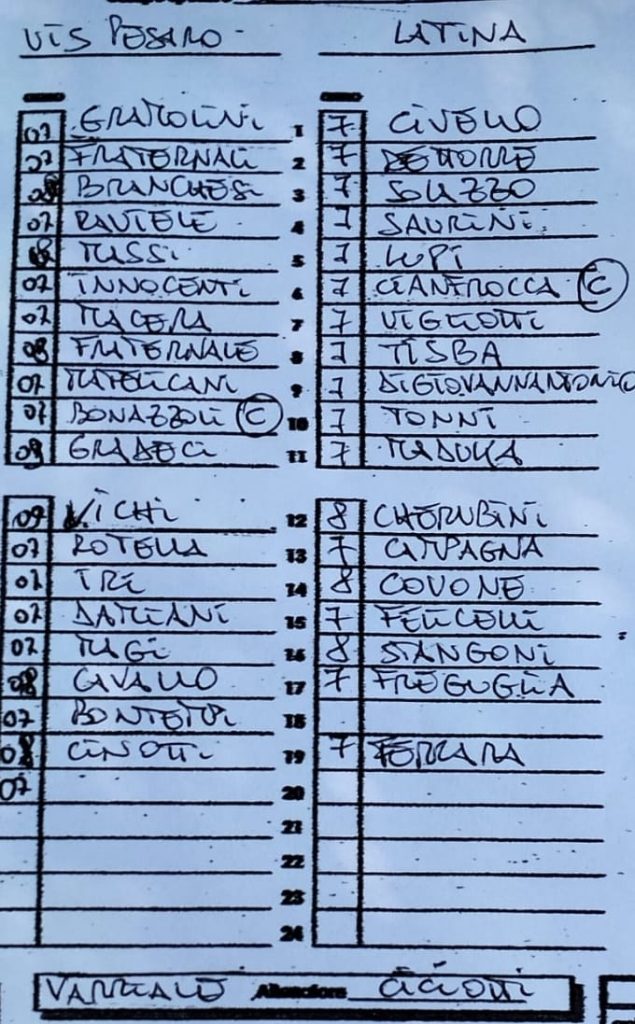 VIS PESARO - LATINA
07 GRAMOLINI 1 7 CIVELLO
07 FRATERNALI 2 7 DETTORRE
08 BRANCHESI 3 7 SOLAZZO
07 RAUTELE 4 7 SAURINI
08 MUSSI 5 7 LUPI
07 INNOCENTI 6 7 CIANFROCCA C
07 MACERA 7 7 VIGLIOTTI
08 FRATERNALE 8 7 TISBA
07 MATELICANI 9 7 DIGIOVANNANTONIO
07 BONAZZOLI C 10 7 TONNI
09 GRADECI 11 7 MADUKA
09 VICHI 12 8 CHERUBINI
07 ROTELLA 13 7 CAMPAGNA
07 IRE 14 8 COVONE
07 DAMIANI 15 7 FELICELLI
07 MAGI 16 8 STANGONI
08 CAVALLO 17 7 FREGUGLIA
07 18
08 CINOTTI 19 7 FERRARA
07 20
21
22
23
24
VARRIALE Allenatore CICIOTTI